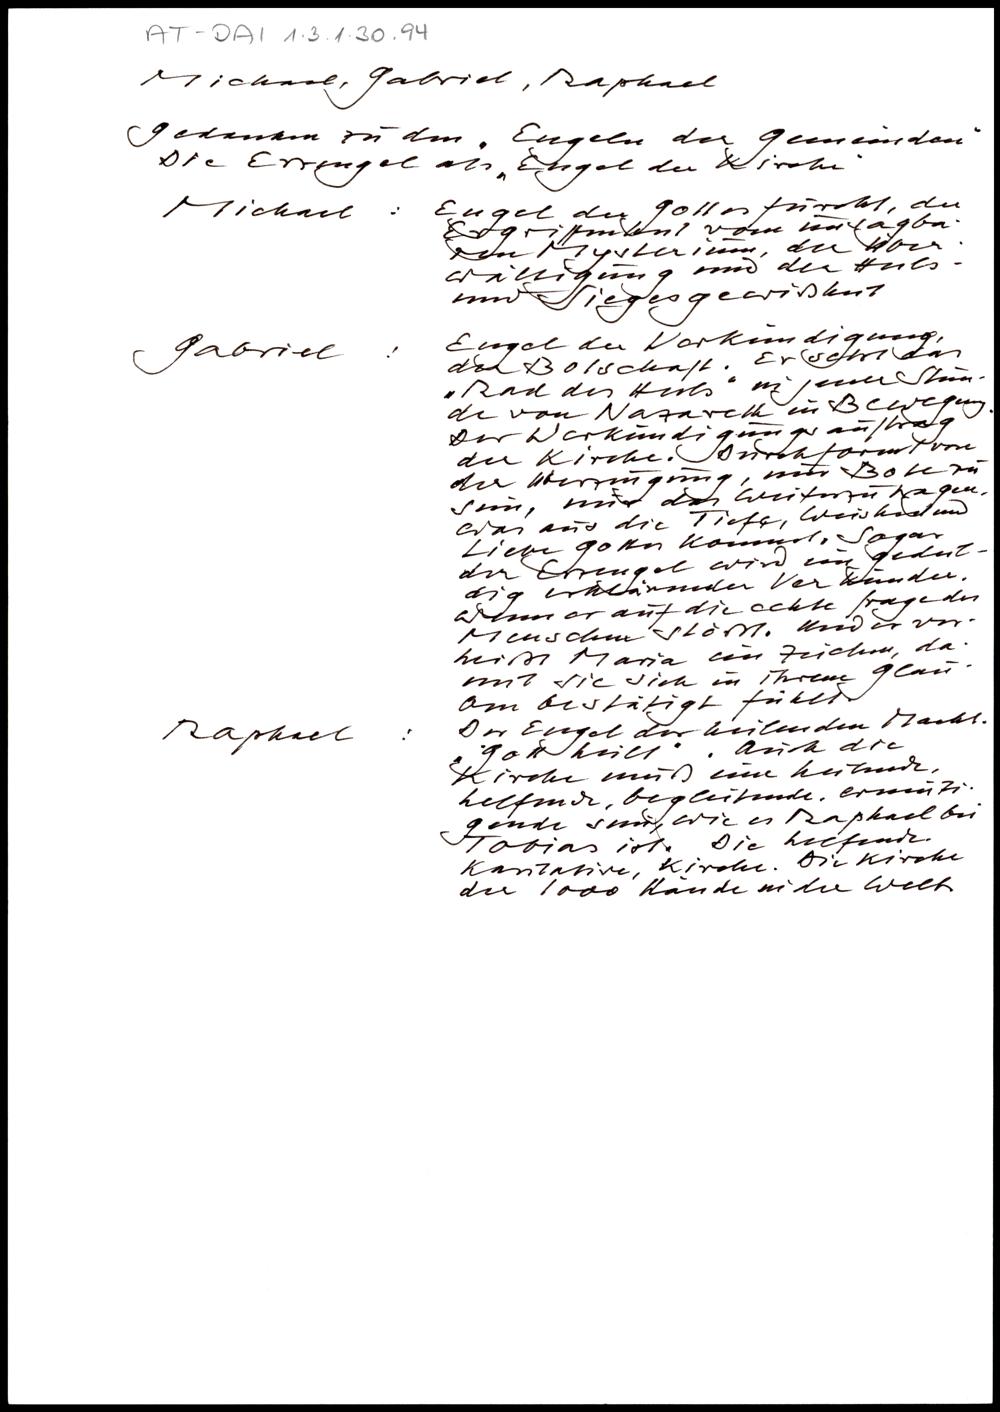 AT-DAI 1.3.1.30.94
Michael, Gabriel, Raphael
Gedanken zu den „Engeln der Gemeinden"
Die Erzengel als „Engel der Kirche"
Michael : Engel der Gottesfurcht, der
Ergriffenheit vom unsagba-
ren Mysterium, der Über-
wältigung und der Heils-
und Siegesgewißheit
Gabriel : Engel der Verkündigung,
der Botschaft. Er setzt das
„Rad des Heils" in jener Stun-
de von Nazareth in Bewegung.
Der Verkündigungsauftrag
der Kirche. Durchformt von
der Überzeugung, nur Bote zu
sein, nur das weiterzutragen,
was aus die Tiefe, Weisheit und
Liebe Gottes kommt. Sogar
der Erzengel wird ein gedul-
dig erklärender Verkünder,
wenn er auf die echte Frage des
Menschen stößt. Und er ver-
heißt Maria ein Zeichen, da-
mit sie sich in ihrem Glau-
ben bestätigt fühlt
Raphael : Der Engel der heilenden Macht.
„Gott heilt". Auch die
Kirche muß eine heilende,
helfende, begleitende, ermuti-
gende sein, wie es Raphael bei
Tobias ist. Die helfende
karitative, Kirche. Die Kirche
der 1000 Hände in der Welt